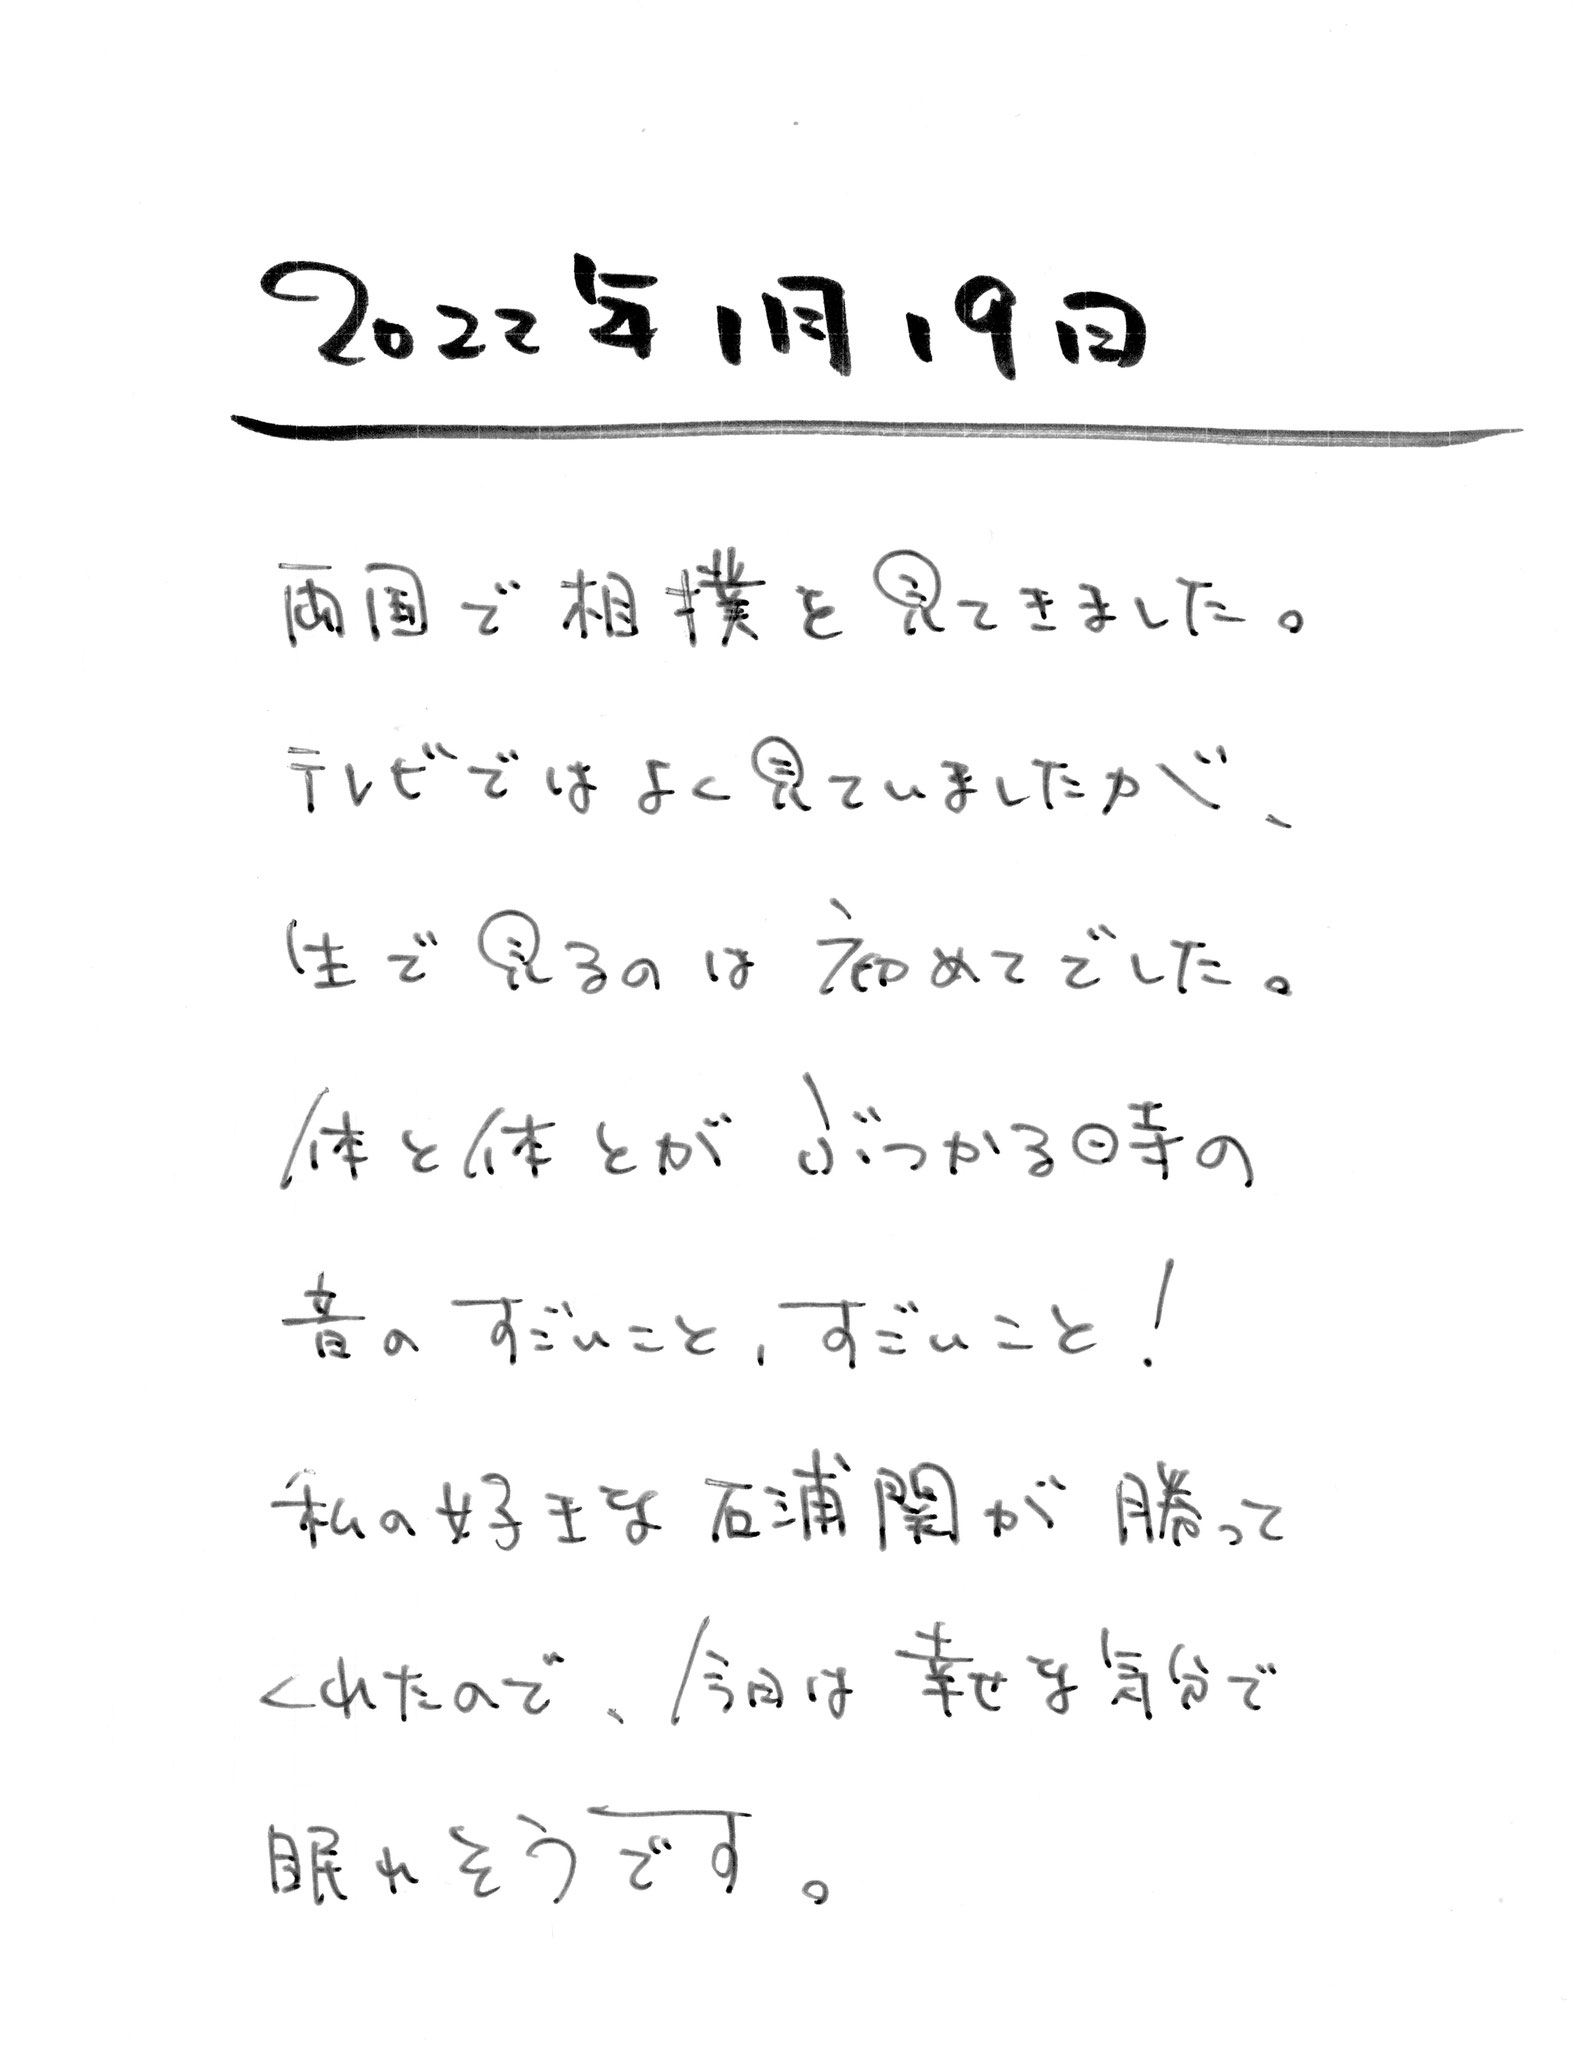 2022年1月19日
両国で相撲を見てきました。
テレビではよく見ていましたが、
生で見るのは初めてでした。
体と体とがぶつかる時の
音のすごいこと、すごいこと!
私の好きな石浦関が勝って
くれたので、今日は幸せな気分で
眠れそうです。